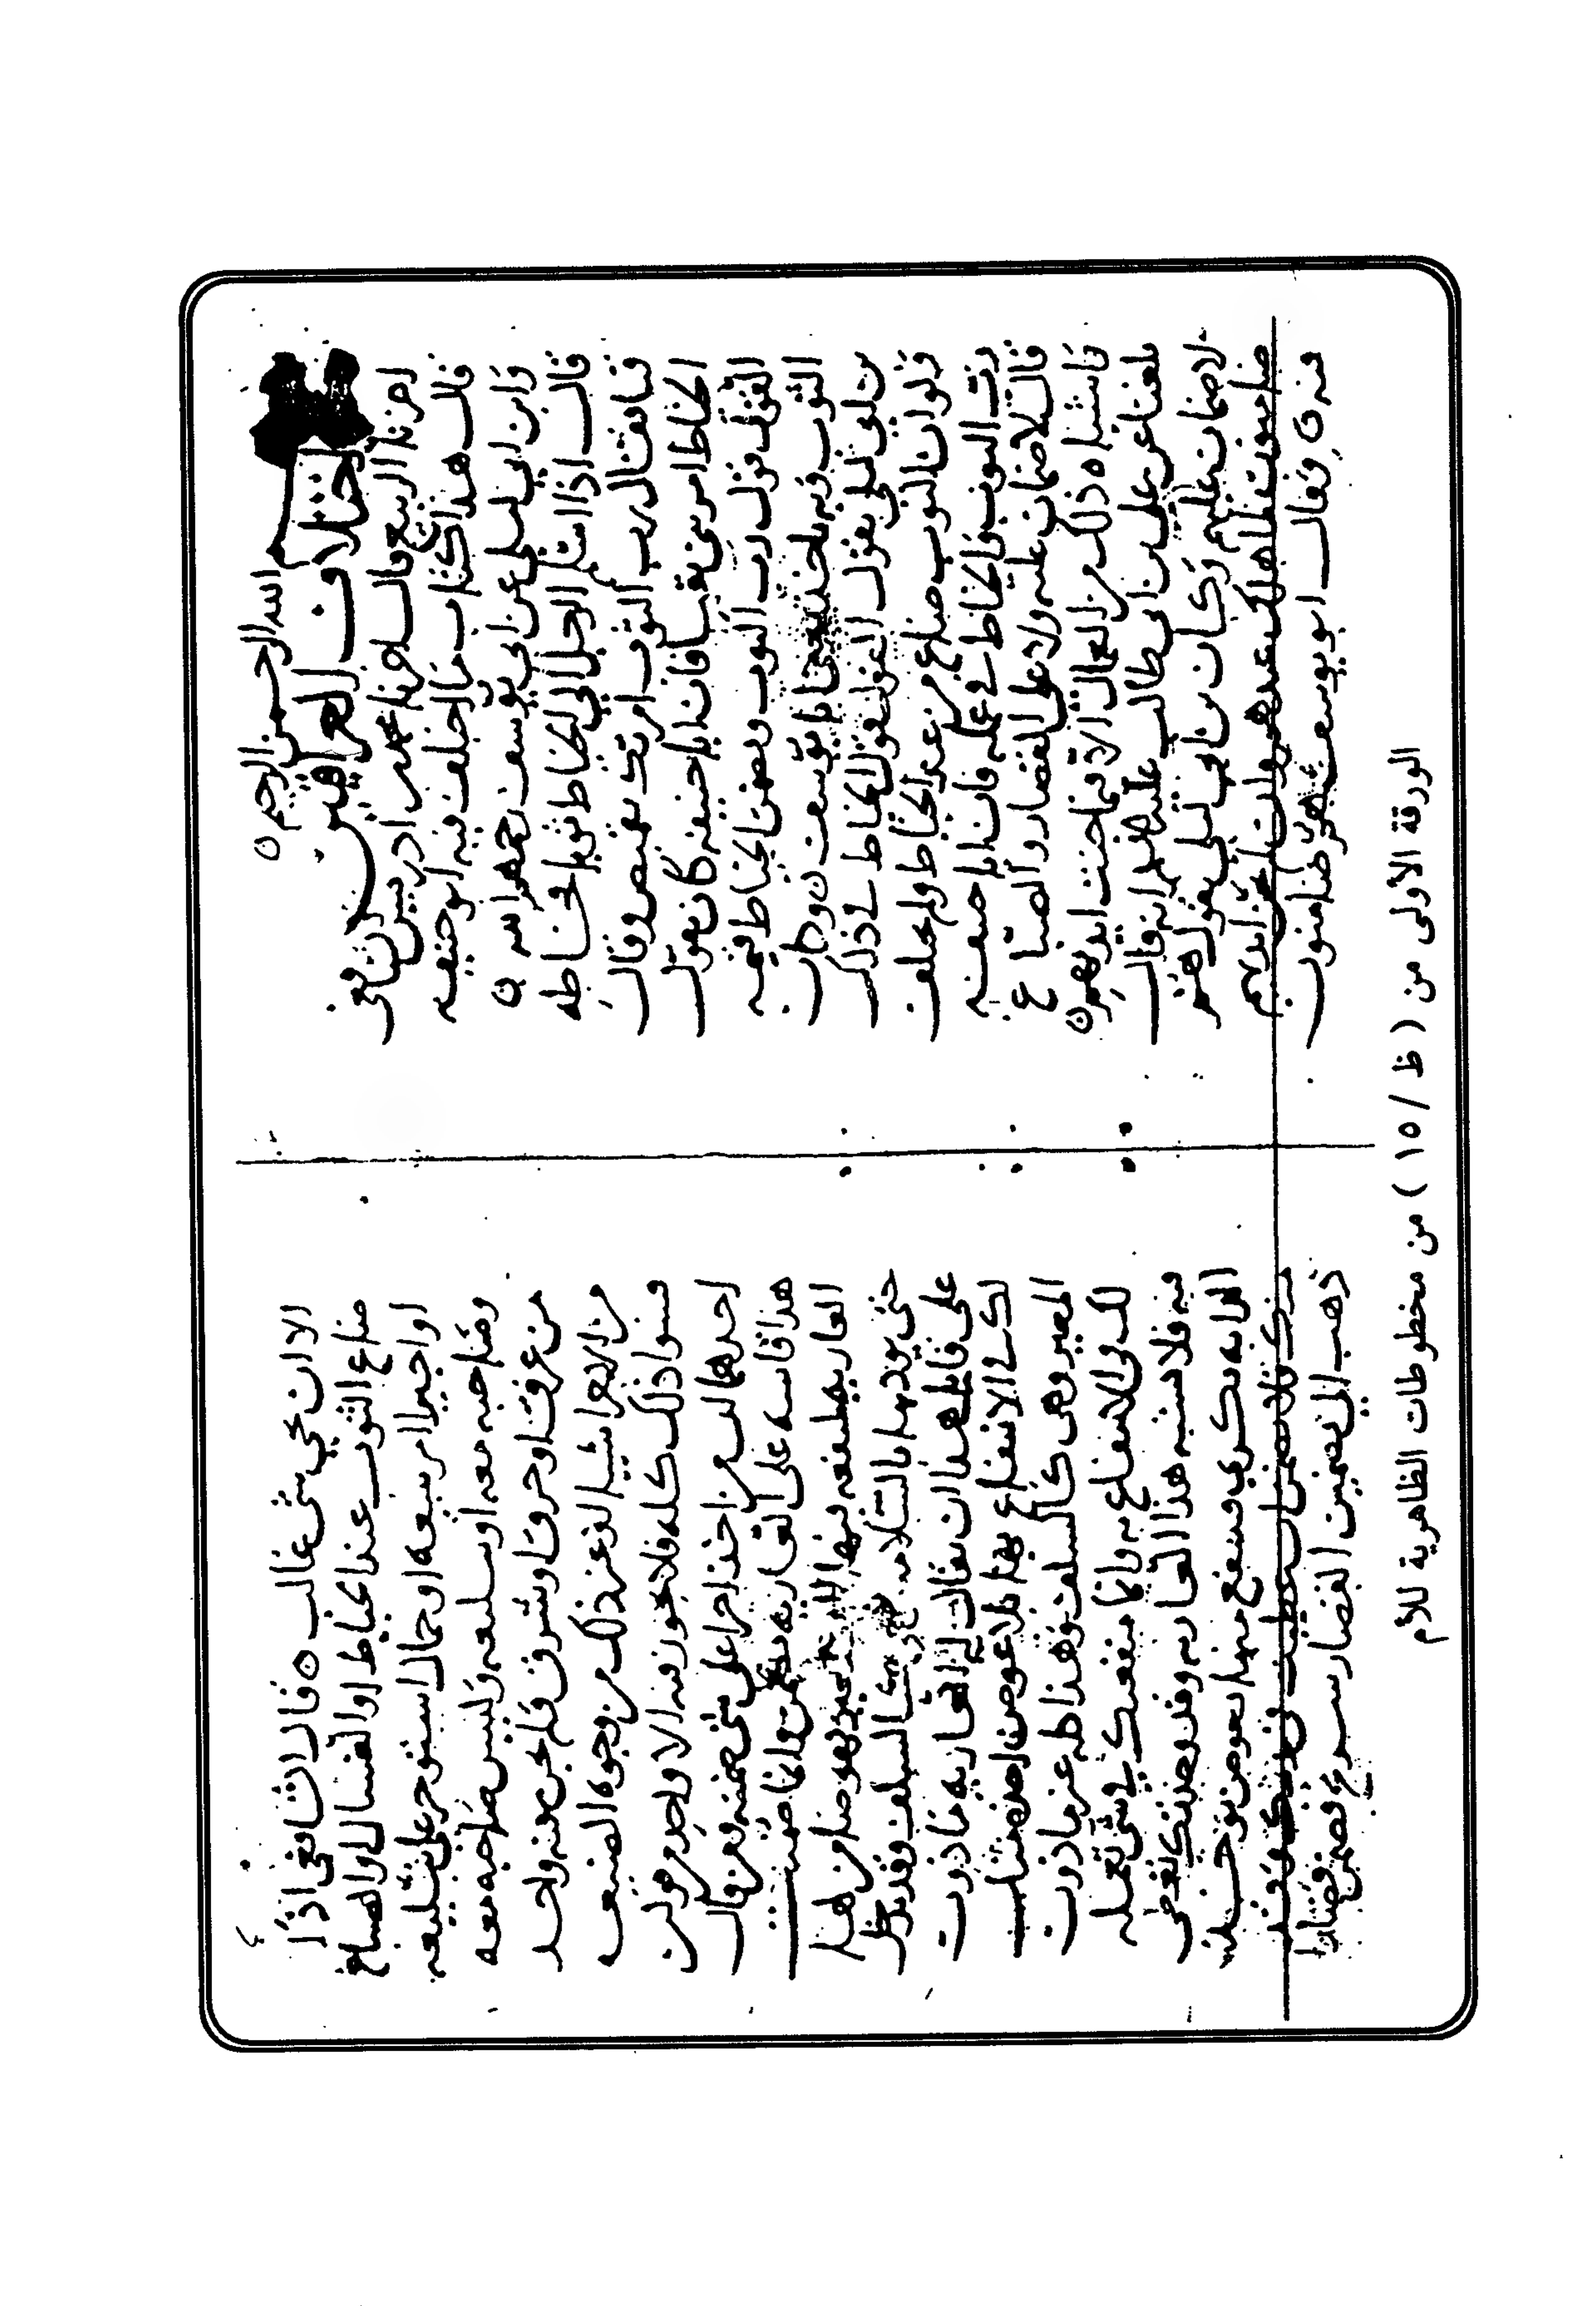 الله الرحمن الرحيم ٥
اختلاف العراقيين
اخبرنا الربيع قال اخبرنا محمد بن ادريس الشافعي
قال هذا كتاب ما اختلف فيه ابو حنيفه
وابن ابي ليلى عن ابي يوسف رحمهم الله ٥
قال اذا اسلم الرجل الى الخياط ثوبا فخاطه
قبا فقال رب الثوب امرتك بقميص وقال
الخياط امرتني بقبا فان ابا حنيفه كان يقول
القول قول رب الثوب ويضمن الخياط قيمه
الثوب وبه ياخذ يعني ابا يوسف ٥ وكان
بن ابي ليلى يقول القول قول الخياط في ذلك
ولو ان الثوب ضاع من عند الخياط ولم يختلف
رب الثوب والخياط في عمله فان ابا حنيفه
قال لا ضمان عليه ولا على القصار والصباغ
وما اشبه ذلك من العمال الا فيما جنت ايديهم ٥
بلغنا عن علي بن ابي طالب عليه السلم انه قال
لا ضمان عليهم وكان بن ابي ليلى يقول هم
ضامنون لما هلك عندهم وان لم تجن ايديهم
فيه ٥ وقال ابو يوسف هم ضامنون
الا ان يجي شي غالب ٥ قال الشافعي اذا
ضاع الثوب عند الخياط او الغسال او الصباغ
او اجير امر ببيعه او حمال استوجر على تبليغه
وصاحبه معه او تبليغه وليس صاحبه معه
من غرق او حرق او سرق فلم يجن عنه واحد
من الاجرا شيا او غير ذلك من وجوه الضيعه
فسوا ذلك كله فلا يجوز فيه الا واحد من قولين
احدهما ان من اخذ اجرا على شي ضمنه ومن قال
هذا قاسه على العاريه تضمن وانما ضمنت
العاريه لمنفعه فيها للمستعير فهو ضامن لها
حتى يوديها بالسلامه وهي كالسلف وقد يدخل
على قايل هذا ان يقال له العاريه ماذون
لك في الانتفاع بها بلا عوض اخذه منك
المعير وهي كالسلف وهذا كله غير ماذون
لك في الانتفاع به وانما منفعتك في شي تعمله
فيه فلا يشبه هذا العاريه وقد وجدتك تعطي
الدابه بكري وتنتفع منها بعوض يوخذ
منك فلا تضمن ان عطبت في يديك وقد
ذهب الى تضمين القصار شريح فضمن قصارا
الورقة الأولى من ( ظ / ١٥ ) من مخطوطات الظاهرية للأم